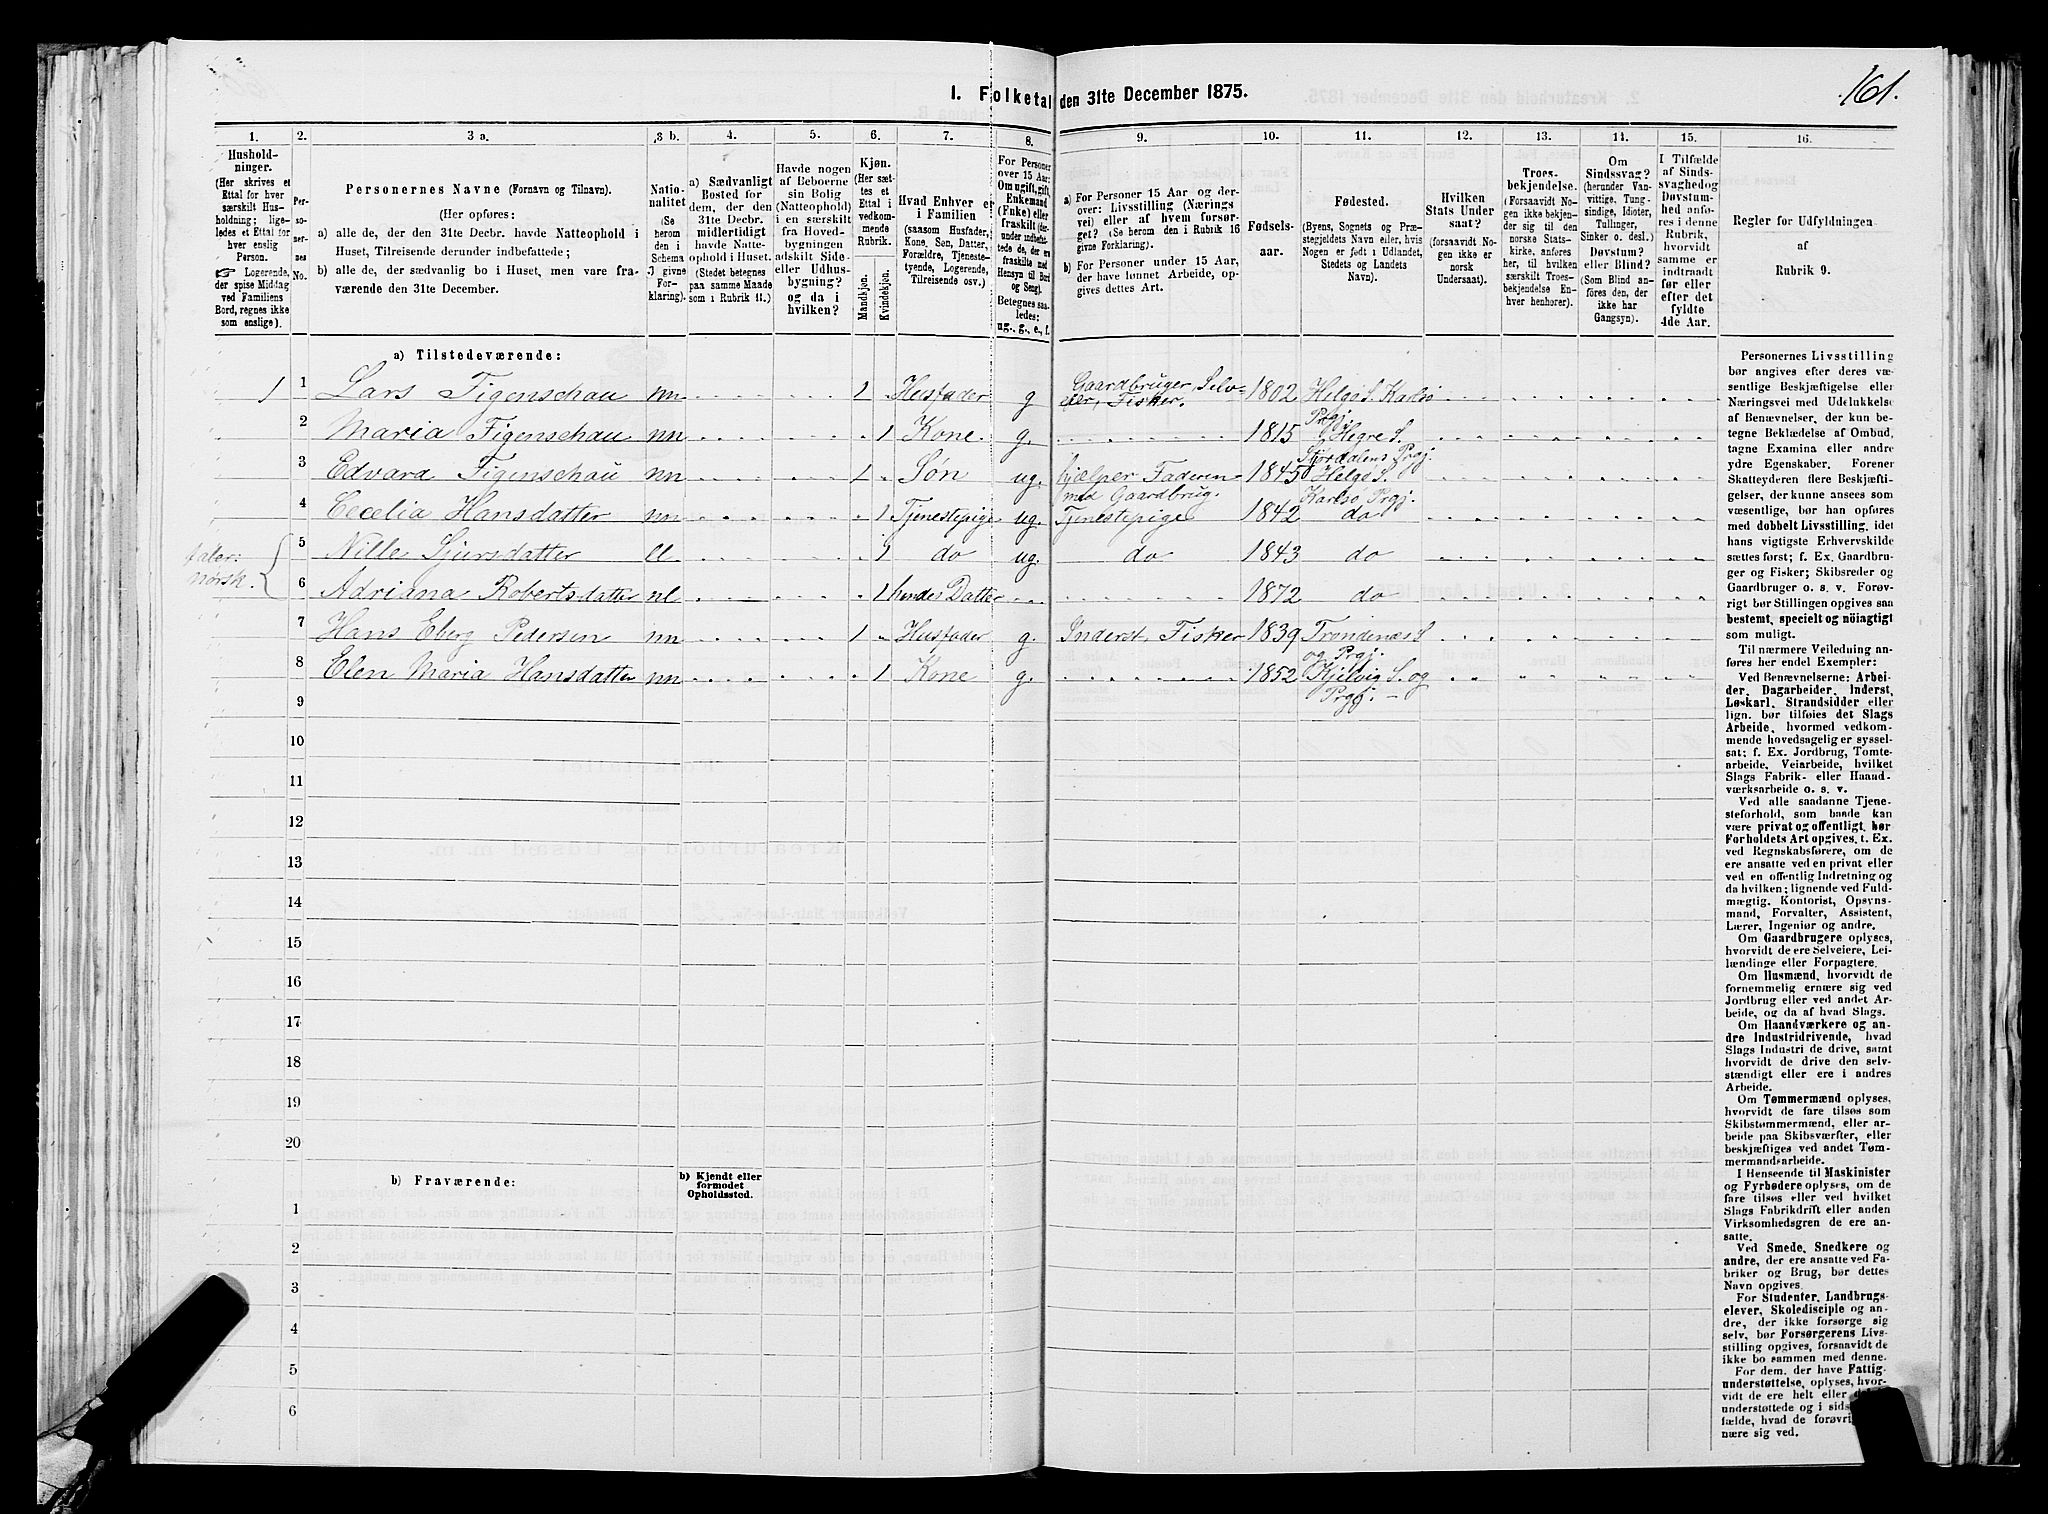 161.
1. Folketal den 31te December 1875.
1. 2. 3 a. 3 b. 4. 5. 6. 7. 8. 9. 10. 11. 12. 13. 14. 15. 16.
Hushold-
ninger.
(Her skrives et
Ettal for hver
særskilt Hus-
holdning; lige-
ledes et Ettal for
hver enslig
Person.
☞ Logerende,
der spise Middag
ved Familiens
Bord, regnes ikke
som enslige).
Per-
so-
ner-
nes
No.
Personernes Navne (Fornavn og Tilnavn).
(Her opføres:
a) alle de, der den 31te Decbr. havde Natteophold i
Huset, Tilreisende derunder indbefattede;
b) alle de, der sædvanlig bo i Huset, men vare fra-
værende den 31te December.
Natio-
nalitet
(Se
herom
den i
Schema
I givne
For-
klaring).
a) Sædvanligt
Bosted for
dem, der den
31te Decbr.
midlertidigt
havde Natte-
ophold i Huset.
(Stedet betegnes
paa samme Maade
som i Rubrik 11.)
Havde nogen
af Beboerne
sin Bolig
(Natteophold)
i en særskilt
fra Hoved-
bygningen
adskilt Side-
eller Udhus-
bygning?
og da i
hvilken?
Kjøn.
(Her sæt-
tes et
Ettal i
vedkom-
mende
Rubrik.
Mandkjøn.
Kvindekjøn.
Hvad Enhver er
i Familien
(saasom Husfader,
Kone, Søn, Datter,
Forældre, Tjeneste-
tyende, Logerende,
Tilreisende osv.)
For Personer
over 15 Aar:
Om ugift, gift,
Enkemand
(Enke) eller
fraskilt (der-
under indbefat-
tede de, der ere
fraskilte med
Hensyn til Bord
og Seng).
Betegnes saa-
ledes:
ug., g., e., f.
a) For Personer 15 Aar og der-
over: Livsstilling (Nærings-
vei) eller af hvem forsør-
get? (Se herom den i Rubrik 16
givne Forklaring).
b) For Personer under 15 Aar,
der have lønnet Arbeide, op-
gives dettes Art.
Fødsels-
aar.
Fødested.
(Byens, Sognets og Præ-
stegjeldets Navn eller, hvis
Nogen er født i Udlandet,
Stedets og Landets
Navn).
Hvilken
Stats Under-
saat?
(forsaavidt No-
gen ikke er
norsk
Undersaat).
Troes-
bekjendelse.
(Forsaavidt No-
gen ikke bekjen-
der sig til den
norske Stats-
kirke, anføres
her, til hvilken
særskilt Troes-
bekjendelse En-
hver henhører).
Om
Sindssvag?
(herunder Van-
vittige, Tung-
sindige, Idioter,
Tullinger,
Sinker o. desl.)
Døvstum?
eller Blind?
(Som Blind an-
føres den, der
ikke har
Gangsyn).
I Tilfælde
af Sinds-
svaghed og
Døvstum-
hed anfø-
res i denne
Rubrik,
hvorvidt
samme er
indtraadt
før eller
efter det
fyldte
4de Aar.
Regler for Udfyldningen
af
Rubrik 9.
a) Tilstedeværende:
1 1 Lars Figenschau nn 1 Husfader g Gaardbruger, Selv-
eier, Fisker. 1802 Helgø S. Karlsø
Prgj.
2 Maria Figenschau nn 1 Kone g. 1815 Hegre S.
Stjørdalens Prgj.
3 Edvard Figenschau nn 1 Søn ug. hjælper Faderen
med Gaardbrug. 1845 Helgø S.
Karlsø Prgj.
4 Cecelia Hansdatter nn 1 Tjenestepige ug. Tjenestepige 1842 do
taler:
norsk.
5 Nille Sjursdatter ll 1 do ug. do 1843 do
6 Adriana Robertsdatter nl 1 hendes Datter 1872 do
7 Hans Eberg Pedersen nn 1 Husfader g. Inderst, Fisker 1839 Trondenæs S
og Prgj.
8 Elen Maria Hansdatter nn 1 Kone g. 1852 Kjelvig S. og
Prgj. –
9
10
11
12
13
14
15
16
17
18
19
20
b) Fraværende:
b) Kjendt eller
formodet
Opholdssted.
1
2
3
4
5
6
Personernes Livsstilling
bør angives efter deres væ-
sentlige Beskjæftigelse eller
Næringsvei med Udelukkelse
af Benævnelser, der kun be-
tegne Beklædelse af Ombud,
tagne Examina eller andre
ydre Egenskaber. Forener
Skatteyderen flere Beskjæfti-
gelser, der kunne ansees som
væsentlige, bør han opføres
med dobbelt Livsstilling, idet
hans vigtigste Erhvervskilde
sættes først; f. Ex. Gaardbru-
ger og Fisker; Skibsreder og
Gaardbruger o. s. v. Forøv-
rigt bør Stillingen opgives saa
bestemt, specielt og nøiagtigt
som muligt.
Til nærmere Veiledning an-
føres her endel Exempler:
Ved Benævnelserne: Arbei-
der, Dagarbeider, Inderst,
Løskarl, Strandsidder eller
lign. bør tilføies det Slags
Arbeide, hvormed vedkom-
mende hovedsagelig er syssel-
sat; f. Ex. Jordbrug, Tomte-
arbeide, Veiarbeide, hvilket
Slags Fabrik- eller Haand-
værksarbeide o. s. v.
Ved alle saadanne Tjene-
steforhold, som baade kan
være privat og offentligt, bør
Forholdets Art opgives, t. Ex.
ved Regnskabsførere, om de
ere ansatte ved en privat eller
ved en offentlig Indretning og
da hvilken; lignende ved Fuld-
mægtig, Kontorist, Opsyns-
mand, Forvalter, Assistent,
Lærer, Ingeniør og andre.
Om Gaardbrugere oplyses,
hvorvidt de ere Selveiere, Lei-
lændinge eller Forpagtere.
Om Husmænd, hvorvidt de
fornemmelig ernære sig ved
Jordbrug eller ved andet Ar-
beide, og da af hvad Slags.
Om Haandværkere og an-
dre Industridrivende, hvad
Slags Industri de drive, samt
hvorvidt de drive den selv-
stændigt eller ere i andres
Arbeide.
Om Tømmermænd oplyses,
hvorvidt de fare tilsøs som
Skibstømmermænd, eller ar-
beide paa Skibsværfter, eller
beskjæftiges ved andet Tøm-
mermandsarbeide.
I Henseende til Maskinister
og Fyrbødere oplyses, om de
fare tilsøs eller ved hvilket
Slags Fabrikdrift eller anden
Virksomhedsgren de ere an-
satte.
Ved Smede, Snedkere og
andre, der ere ansatte ved Fa-
briker og Brug, bør dettes
Navn opgives.
For Studenter, Landbrugs-
elever, Skoledisciple og an-
dre, der ikke forsørge sig
selv, bør Forsørgerens Livs-
stilling opgives, forsaavidt de
ikke bo sammen med denne.
For dem, der have Fattig-
understøttelse, oplyses, hvor-
vidt de ere helt eller
understøttede og i
fælde, hvad de
nære sig ved.